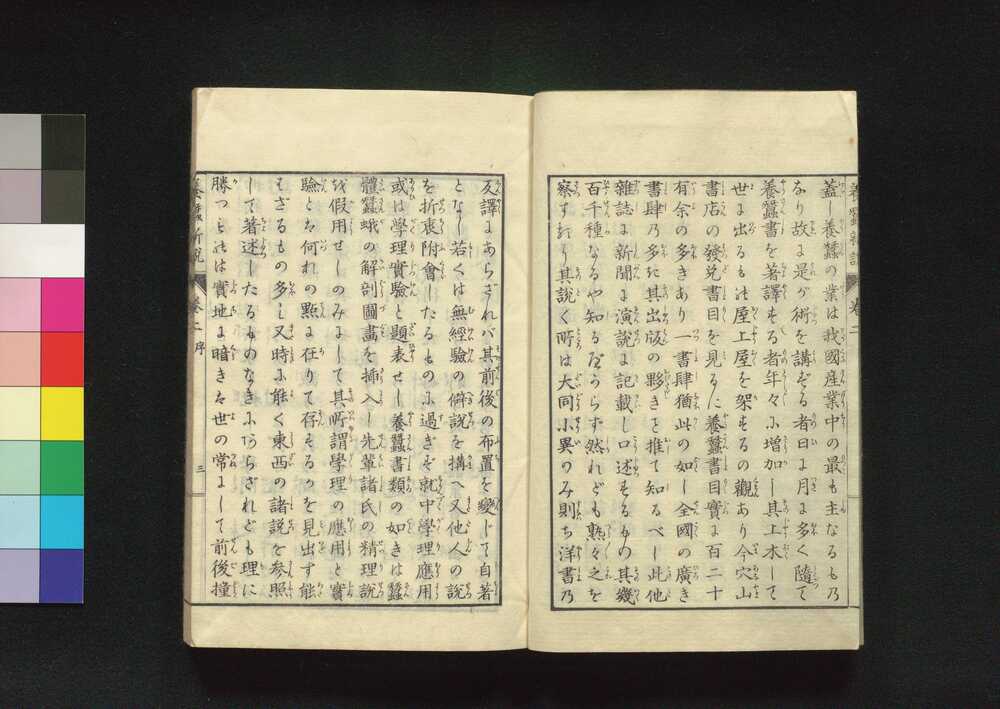 蓋し養蠶の業は我國産業中の最も主なるもの
なり故に是が術を講ずる者日に月に多く隨て
養蠶書を著譯する者年々に増加し其上木して
世に出るもの屋上屋を架するの觀あり今穴山
書店の發兌書目を見るに養蠶書目實に百二十
有余の多きあり一書肆猶此の如し全國の廣き
書肆乃多き其出版の夥きを推て知るべし此他
雜誌に新聞に演説に記載し口述するもの其幾
百千種なるや知るべからず然れども熟々之を
察するに其説く所は大同小異のみ則ち洋書乃
反譯にあらざれバ其前後の布置を變じて自著
となし若くは無經驗の僻説を搆へ又他人の説
を折衷附會したるものに過ぎず就中學理應用
或は學理實驗と題表せし養蠶書類の如きは蠶
體蠶蛾の解剖圖畫を挿入し先輩諸氏の精理説
を假用せしのみにして其所謂學理の應用と實
驗とは何れの點に在りて存するかを見出す能
はざるもの多し又時に能く東西の諸説を参照
して著述したるものなきにあらざれども理に
勝つものは實地に暗きは世の常にして前後撞
養蠶新説
卷二 序
三
卷二